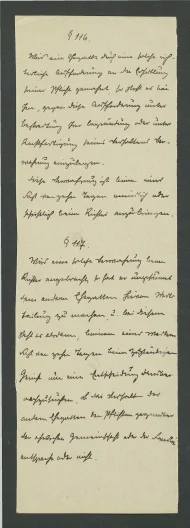 § 116.
Wird ein Ehegatte durch eine solche rich-
terliche Aufforderung an die Erfüllung
seiner Pflichten gemahnt, so steht es
gegen diese Aufforderung unter
Bestreitung ihrer Begründung oder unter
Rechtfertigung seines Verhaltens Ver-
wahrung einzulegen.
Diese Verwahrung ist binnen einer
Frist von zehn Tagen mündlich oder
schriftlich beim Richter anzubringen.
§ 117.
Wird eine solche Verwahrung beim
Richter angebracht, so hat er
dem andern Ehegatten hievon Mit-
teilung zu machen u. bei diesem
steht es alsdann, binnen einer weitern
Frist von zehn Tagen beim zuständigen
Gericht um eine Entscheidung darüber
nachzusuchen, ob das Verhalten des
andern Ehegatten den Pflichten gegenüber
der ehelichen Gemeinschaft oder der Familie
entspreche oder nicht.